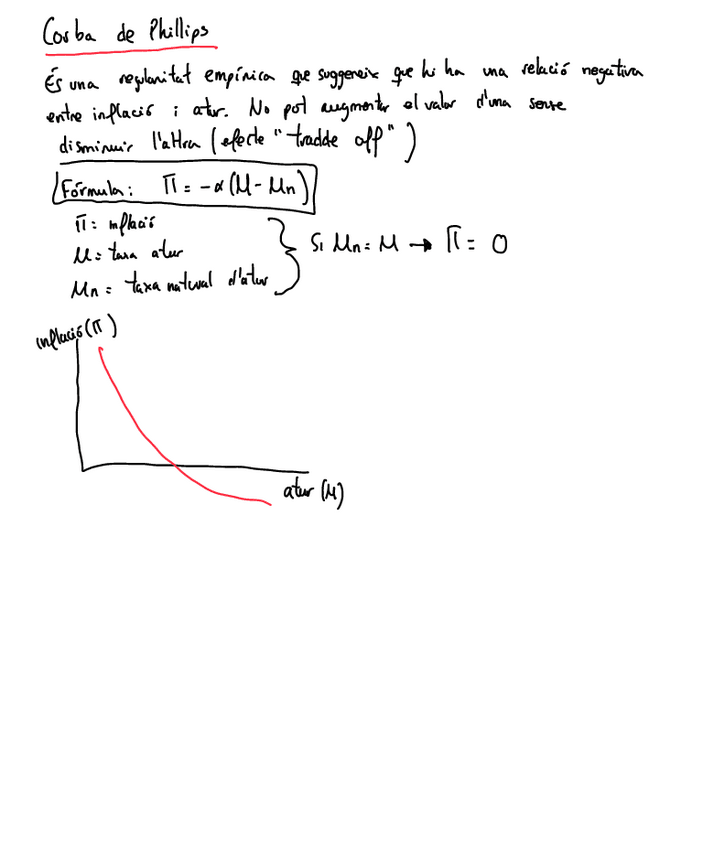 Corba de Phillips
És una regularitat empírica que suggereix que hi ha una relació negativa
entre inflació i atur. No pot augmentar el valor d'una sense
disminuir l'altra (efecte "tradde off")
Fórmula: π = -α(μ - μn)
π: inflació
μ: taxa atur
μn = taxa natural d'atur
Si μn = μ → π = 0
inflació (π)
atur (μ)